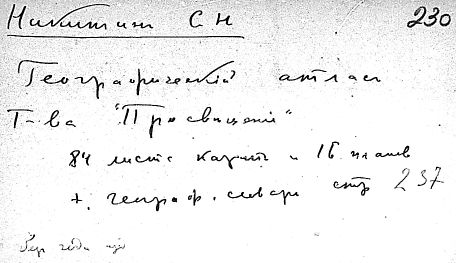 Никитин С Н 230
Географический атлас
Т-ва "Просвещение"
84 листа карт и 16 планов
+ географ. словарь стр 237
года